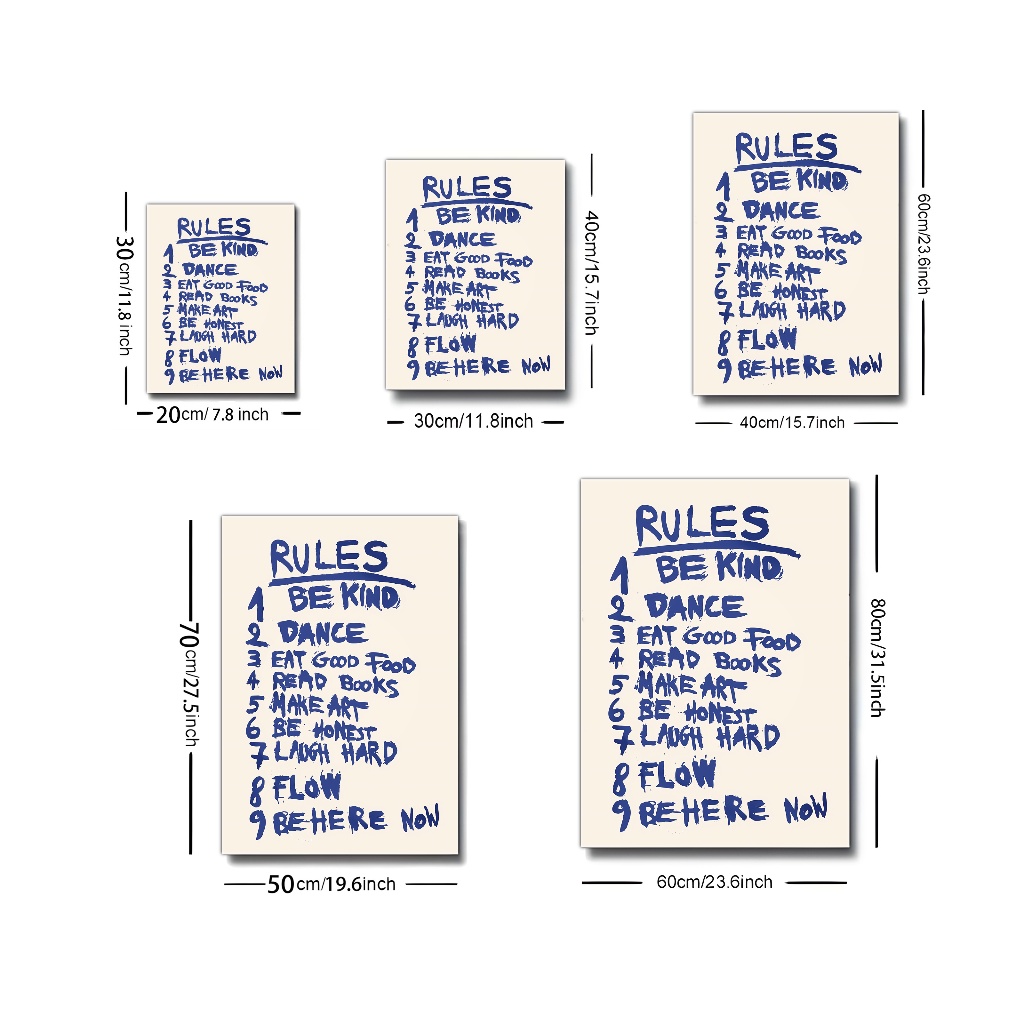 RULES
1 BE KIND
2 DANCE
3 EAT GOOD FOOD
4 READ BOOKS
5 MAKE ART
6 BE HONEST
7 LAUGH HARD
8 FLOW
9 BE HERE NOW
30cm/11.8 inch
20cm/7.8 inch
RULES
1 BE KIND
2 DANCE
3 EAT GOOD FOOD
4 READ BOOKS
5 MAKE ART
6 BE HONEST
7 LAUGH HARD
8 FLOW
9 BE HERE NOW
40cm/15.7inch
30cm/11.8inch
RULES
1 BE KIND
2 DANCE
3 EAT GOOD FOOD
4 READ BOOKS
5 MAKE ART
6 BE HONEST
7 LAUGH HARD
8 FLOW
9 BE HERE NOW
60cm/23.6inch
40cm/15.7inch
RULES
1 BE KIND
2 DANCE
3 EAT GOOD FOOD
4 READ BOOKS
5 MAKE ART
6 BE HONEST
7 LAUGH HARD
8 FLOW
9 BE HERE NOW
70cm/27.5inch
50cm/19.6inch
RULES
1 BE KIND
2 DANCE
3 EAT GOOD FOOD
4 READ BOOKS
5 MAKE ART
6 BE HONEST
7 LAUGH HARD
8 FLOW
9 BE HERE NOW
80cm/31.5inch
60cm/23.6inch